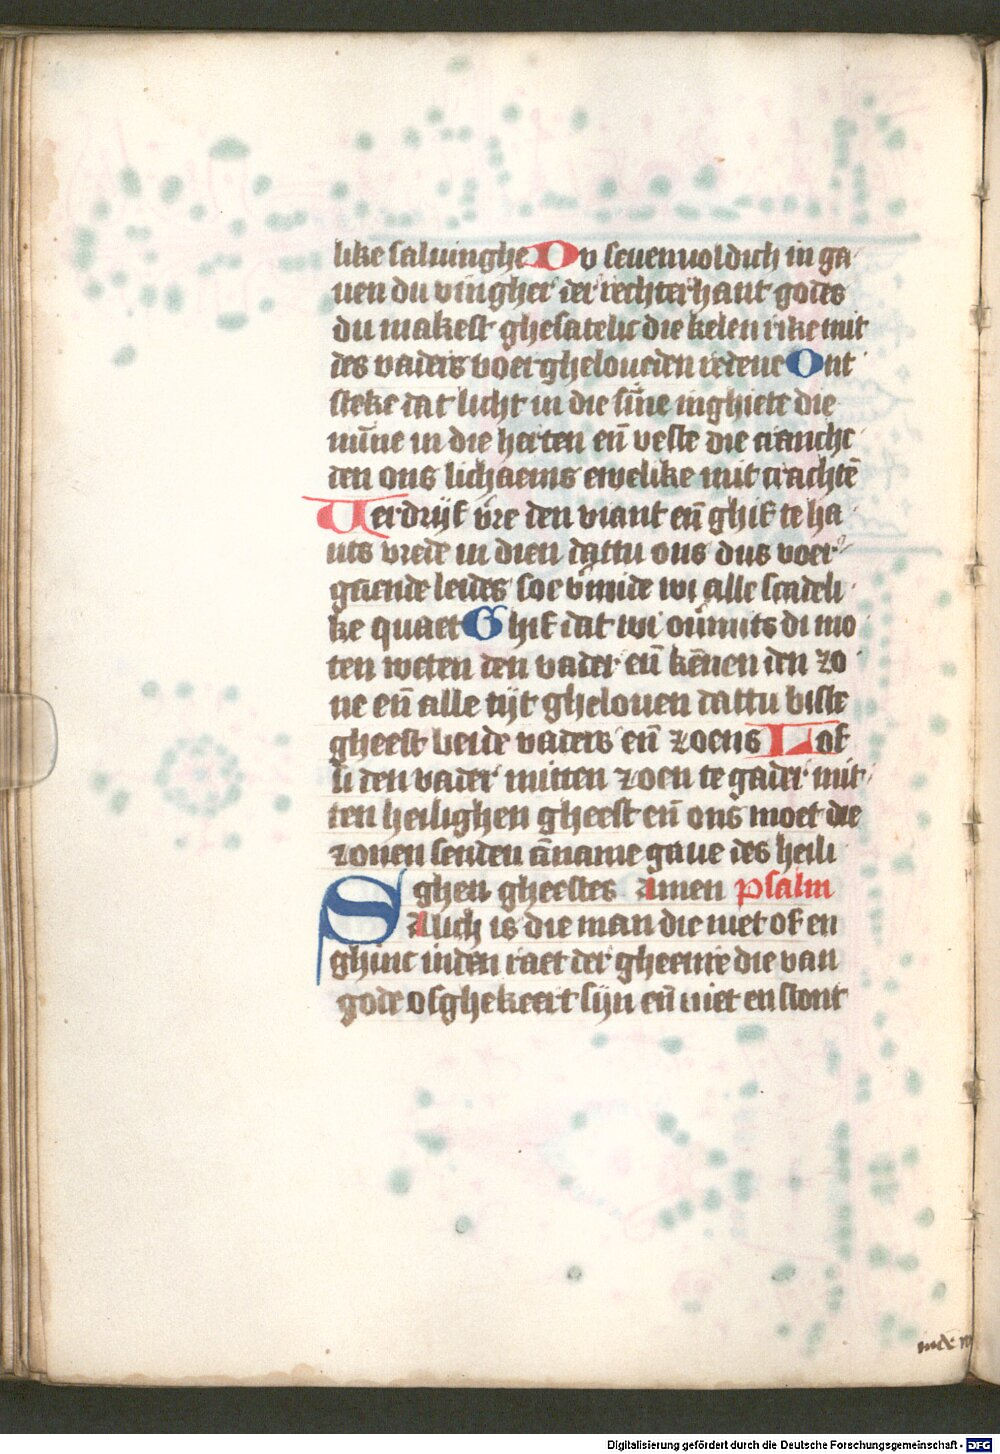 like saluinghe Dv seuenuoldich in ga
uen du vingher der rechterhant godes
du makest ghesatelic die kelen rike mit
des vaders voer gheloueden redene Ont
steke dat licht in die sīne inghiete die
mīne in die herten eñ veste die cranche
den ons lichaems ewelike mit crachtē
Verdrijf v̄re den viant eñ ghif te ha
nts vrede in dien dattu ons dus voer
gaende leides soe v̄mide wi alle scadeli
ke quaet Ghif dat wi ou̅mits di mo
ten weten den vader eñ kēnen den zo
ne eñ alle tijt ghelouen dattu biste
gheest beide vaders eñ zoens Lof
si den vader mitten zoen te gader mit
ten heilighen gheest eñ ons moet die
zonen senden āname gaue des heili
ghen gheestes Amen psalm
Salich is die man die niet of en
ghinc inden raet der gheenre die van
gode ofghekeert sijn eñ niet en stont
Digitalisierung gefördert durch die Deutsche Forschungsgemeinschaft - DFG